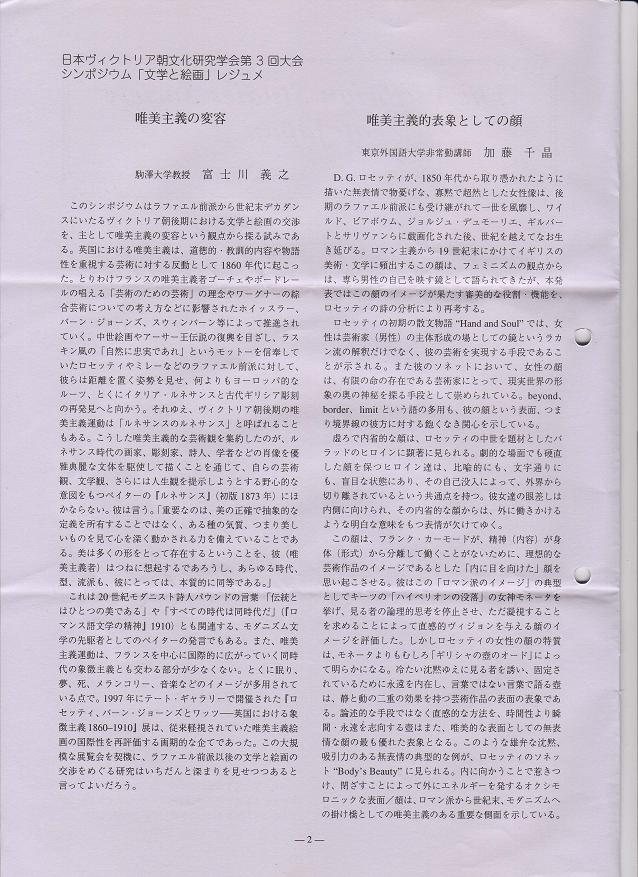 日本ヴィクトリア朝文化研究学会第３回大会
シンポジウム「文学と絵画」レジュメ
唯美主義の変容
駒澤大学教授　富士川　義之
このシンポジウムはラファエル前派から世紀末デカダン
スにいたるヴィクトリア朝後期における文学と絵画の交渉
を、主として唯美主義の変容という観点から探る試みであ
る。英国における唯美主義は、道徳的・教訓的内容や物語
性を重視する芸術に対する反動として1860年代に起こっ
た。とりわけフランスの唯美主義者ゴーチェやボードレー
ルの唱える「芸術のための芸術」の理念やワーグナーの綜
合芸術についての考え方などに影響されたホイッスラー、
バーン・ジョーンズ、スウィンバーン等によって推進され
ていく。中世絵画やアーサー王伝説の復興を目ざし、ラス
キン風の「自然に忠実であれ」というモットーを信奉して
いたロセッティやミレーなどのラファエル前派に対して、
彼らは距離を置く姿勢を見せ、何よりもヨーロッパ的な
ルーツ、とくにイタリア・ルネサンスと古代ギリシア彫刻
の再発見へと向かう。それゆえ、ヴィクトリア朝後期の唯
美主義運動は「ルネサンスのルネサンス」と呼ばれること
もある。こうした唯美主義的な芸術観を集約したのが、ル
ネサンス時代の画家、彫刻家、詩人、学者などの肖像を優
雅典麗な文体を駆使して描くことを通じて、自らの芸術
観、文学観、さらには人生観を提示しようとする野心的な
意図をもつペイターの『ルネサンス』（初版1873年）にほ
かならない。彼は言う。「重要なのは、美の正確で抽象的な
定義を所有することではなく、ある種の気質、つまり美し
いものを見て心を深く動かされる力を備えていることであ
る。美は多くの形をとって存在するということを、彼（唯
美主義者）はつねに想起するであろうし、あらゆる時代、
型、流派も、彼にとっては、本質的に同等である。」
これは20世紀モダニスト詩人パウンドの言葉「伝統と
はひとつの美である」や「すべての時代は同時代だ」（『ロ
マンス語文学の精神』1910）とも関連する、モダニズム文
学の先駆者としてのペイターの発言でもある。また、唯
美主義運動は、フランスを中心に国際的に広がっていく同時
代の象徴主義とも交わる部分が少なくない。とくに眠り、
夢、死、メランコリー、音楽などのイメージが多用されて
いる点で。1997年にテート・ギャラリーで開催された『ロ
セッティ、バーン・ジョーンズとワッツ――英国における象
徴主義1860–1910』展は、従来軽視されていた唯美主義絵
画の国際性を再評価する画期的な企てであった。この大規
模な展覧会を契機に、ラファエル前派以後の文学と絵画の
交渉をめぐる研究はいちだんと深まりを見せつつあると
言ってよいだろう。
唯美主義的表象としての顔
東京外国語大学非常勤講師　加藤　千晶
D. G. ロセッティが、1850年代から取り憑かれたように
描いた無表情で物憂げな、寡黙で超然とした女性像は、後
期のラファエル前派にも受け継がれて一世を風靡し、ワイ
ルド、ビアボウム、ジョルジュ・デュモーリエ、ギルバー
トとサリヴァンらに戯画化された後、世紀を越えてなお生
き延びる。ロマン主義から19世紀末にかけてイギリスの
美術・文学に頻出するこの顔は、フェミニズムの観点から
は、専ら男性の自己を映す鏡として語られてきたが、本発
表ではこの顔のイメージが果たす審美的な役割・機能を、
ロセッティの詩の分析により再考する。
ロセッティの初期の散文物語 “Hand and Soul” では、女
性は芸術家（男性）の主体形成の場としての鏡というラカ
ン流の解釈だけでなく、彼の芸術を実現する手段であるこ
とが示される。また彼のソネットにおいて、女性の顔
は、有限の命の存在である芸術家にとって、現実世界の形
象の奥の神秘を探る手段として崇められている。beyond、
border、limit という語の多用も、彼の顔という表面、つま
り境界線の彼方に対する飽くなき関心を示している。
虚ろで内省的な顔は、ロセッティの中世を題材としたバ
ラッドのヒロインに顕著に見られる。劇的な場面でも硬直
した顔を保つヒロイン達は、比喩的にも、文字通りに
も、盲目な状態にあり、その自己没入によって、外界から
切り離されているという共通点を持つ。彼女達の眼差しは
内側に向けられ、その内省的な顔からは、外に働きかける
ような明白な意味をもつ表情が欠けてゆく。
この顔は、フランク・カーモードが、精神（内容）が身
体（形式）から分離して働くことがないために、理想的な
芸術作品のイメージであるとした「内に目を向けた」顔を
思い起こさせる。彼はこの「ロマン派のイメージ」の典型
としてキーツの「ハイペリオンの没落」の女神モネータを
挙げ、見る者の論理的思考を停止させ、ただ凝視すること
を求めることによって直感的ヴィジョンを与える顔のイ
メージを評価した。しかしロセッティの女性の顔の特質
は、モネータよりもむしろ「ギリシャの壺のオード」によっ
て明らかになる。冷たい沈黙ゆえに見る者を誘い、固定さ
れているために永遠を内在し、言葉ではない言葉で語る壺
は、静と動の二重の効果を持つ芸術作品の表面の表象であ
る。論述的な手段ではなく直感的な方法を、時間性より瞬
間・永遠を志向する壺はまた、唯美的な表面としての無表
情な顔の最も優れた表象となる。このような雄弁な沈黙、
吸引力のある無表情の典型的な例が、ロセッティのソネッ
ト “Body’s Beauty” に見られる。内に向かうことで惹きつ
け、閉ざすことによって外にエネルギーを発するオクシモ
ロニックな表面／顔は、ロマン派から世紀末、モダニズムへ
の掛け橋としての唯美主義のある重要な側面を示している。
— 2 —